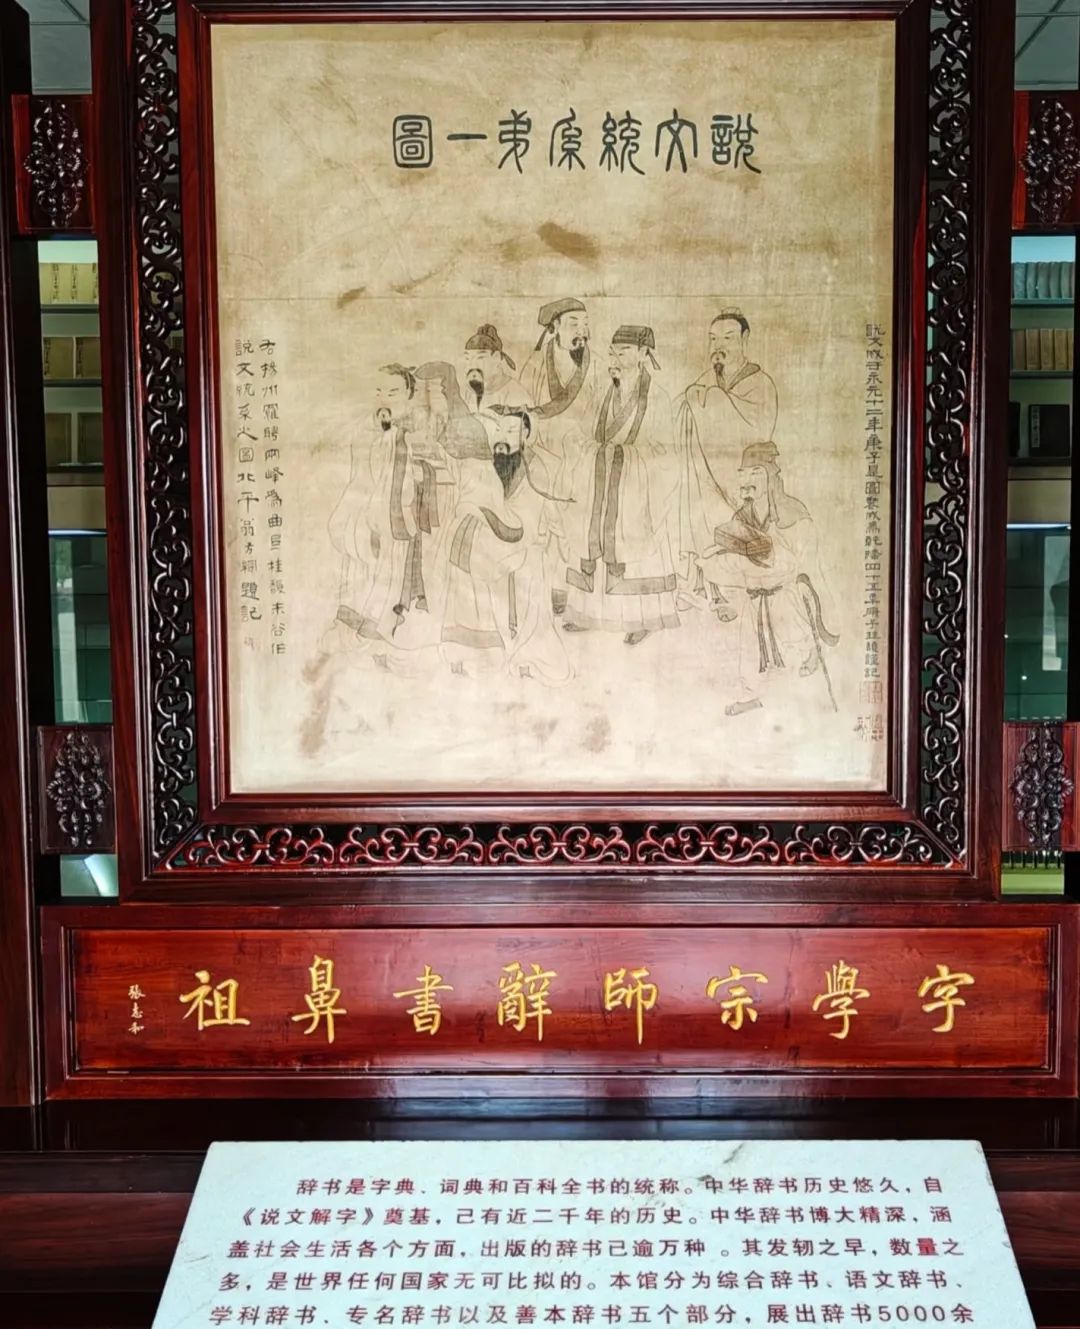 說文統系弟一圖
說文成于永元十二年庚子是圖裝成爲乾隆四十五年庚子桂馥謹記
右揚州羅聘兩峰爲曲阜桂馥未谷作
說文統系之圖北平翁方綱題記
字學宗師辭書鼻祖
張志和
辞书是字典、词典和百科全书的统称。中华辞书历史悠久，自
《说文解字》奠基，已有近二千年的历史。中华辞书博大精深，涵
盖社会生活各个方面，出版的辞书已逾万种 。其发轫之早，数量之
多，是世界任何国家无可比拟的。本馆分为综合辞书、语文辞书、
学科辞书、专名辞书以及善本辞书五个部分，展出辞书5000余